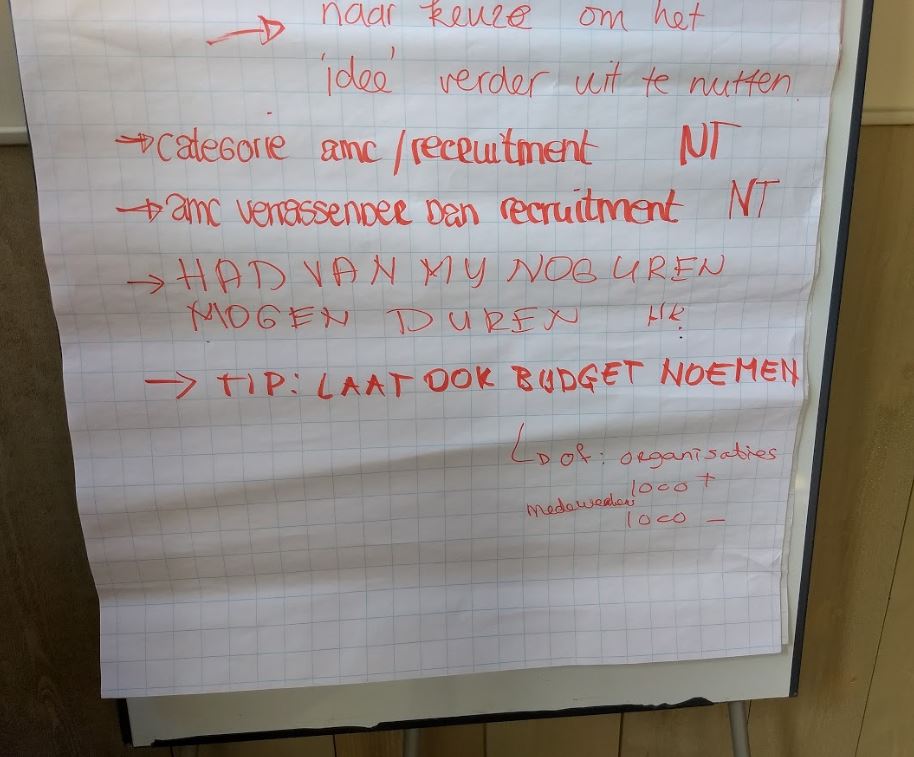 → naar keuze om het
'idee' verder uit te nutten.
→ categorie amc/receuitment NT
→ amc verrassender dan recruitment NT
→ HAD VAN MY NOG UREN
MOGEN DUREN
→ TIP: LAAT OOK BUDGET NOEMEN
↳ of: organisaties
1000 +
medewerkers
1000 –